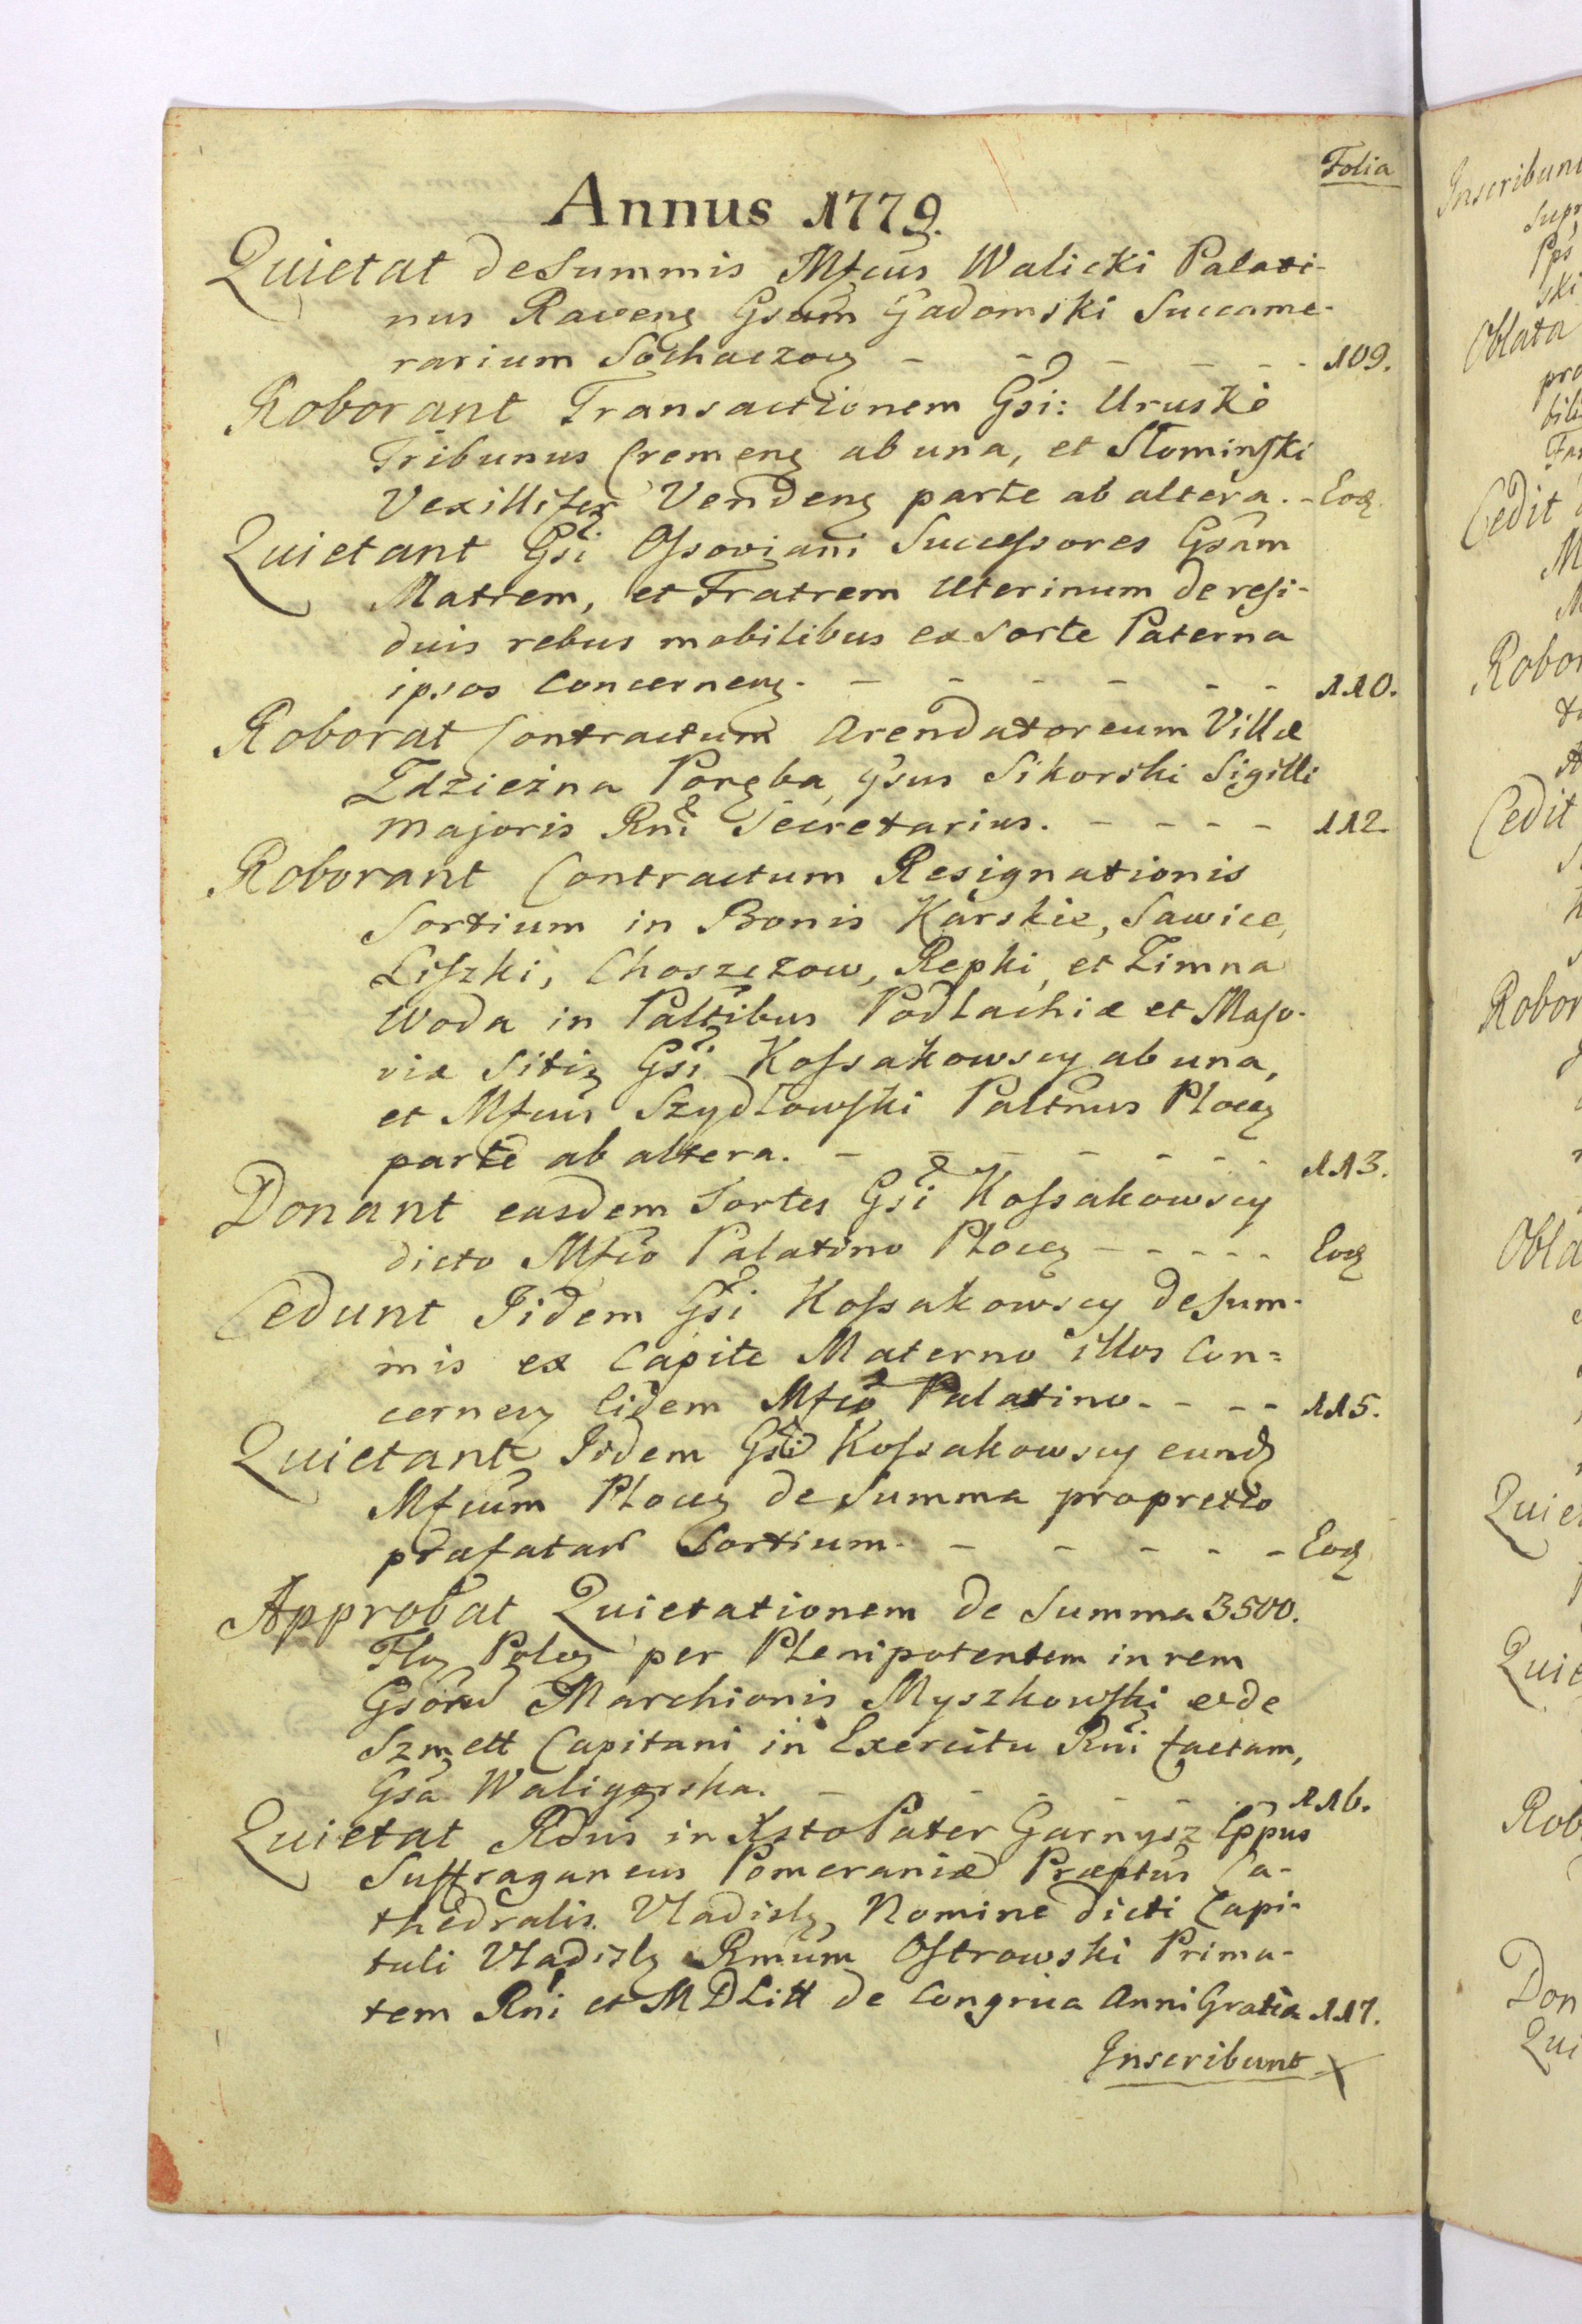 Folia
Annus 1779.
Quietat de Summis Mfcus Walicki Palati-
nus Ravenꝫ Gsum Gadomski Succame-
rarium Sochaczovꝫ - - - - - 109.
Roborant Transactionem Gsi: Uruski
Tribunus Cremenꝫ ab una, et Słominski
Vexillifer Vendenꝫ parte ab altera. - Eoꝫ
Quietant Gsi Ossoviani Successores Gsam
Matrem, et Fratrem Uterinum de resi-
duis rebus mobilibus ex Sorte Paterna
ipsos Concernenꝫ. - - - - - - 110.
Roborat Contractum Arendatoreum Villæ
Zdzieżna Poręba, Gsus Sikorski Sigilli
Majoris Rni Secretarius. - - - - 112.
Roborant Contractum Resignationis
Sortium in Bonis Karskie, Sawice,
Liszki, Choszczow, Repki, et Zimna
Woda in Paltibus Podlachiæ et Maso-
viæ Sitiꝫ Gsi Kossakowscy ab una,
et Mfcus Szydłowski Paltnus Plocꝫ
parte ab altera. - - - - - - - 113.
Donant easdem Sortes Gsi Kossakowscy
dicto Mfco Palatino Plocꝫ - - - - - Eoꝫ
Cedunt Iidem Gsi Kossakowscy de Sum-
mis ex Capite Materno illos Con=
cernenꝫ Eidem Mfco Palatino - - - - 115.
Quietant Iidem Gsi Kossakowscy eundꝫ
Mfcum Plocꝫ de Summa pro pretio
præfatar Sortium. - - - - - Eoꝫ
Approbat Quietationem de Summa 3500.
Floꝫ Polcꝫ per Plenipotentem in rem
Gsoru Marchionis Myszkowski et de
Capitani in Exercitu Rni factam,
Gsa Waligorska. - - - - - - 116.
Quietat Rdus in Xsto Pater Garnysz Eppus
Suffraganeus Pomeraniæ Præptus Ca-
thedralis Vladislꝫ, Nomine dicti Capi-
tuli Vladislꝫ Rmum Ostrowski Prima-
tem Rni et M D Litt de Congrua Anni Gratiæ 117.
Inscribunt